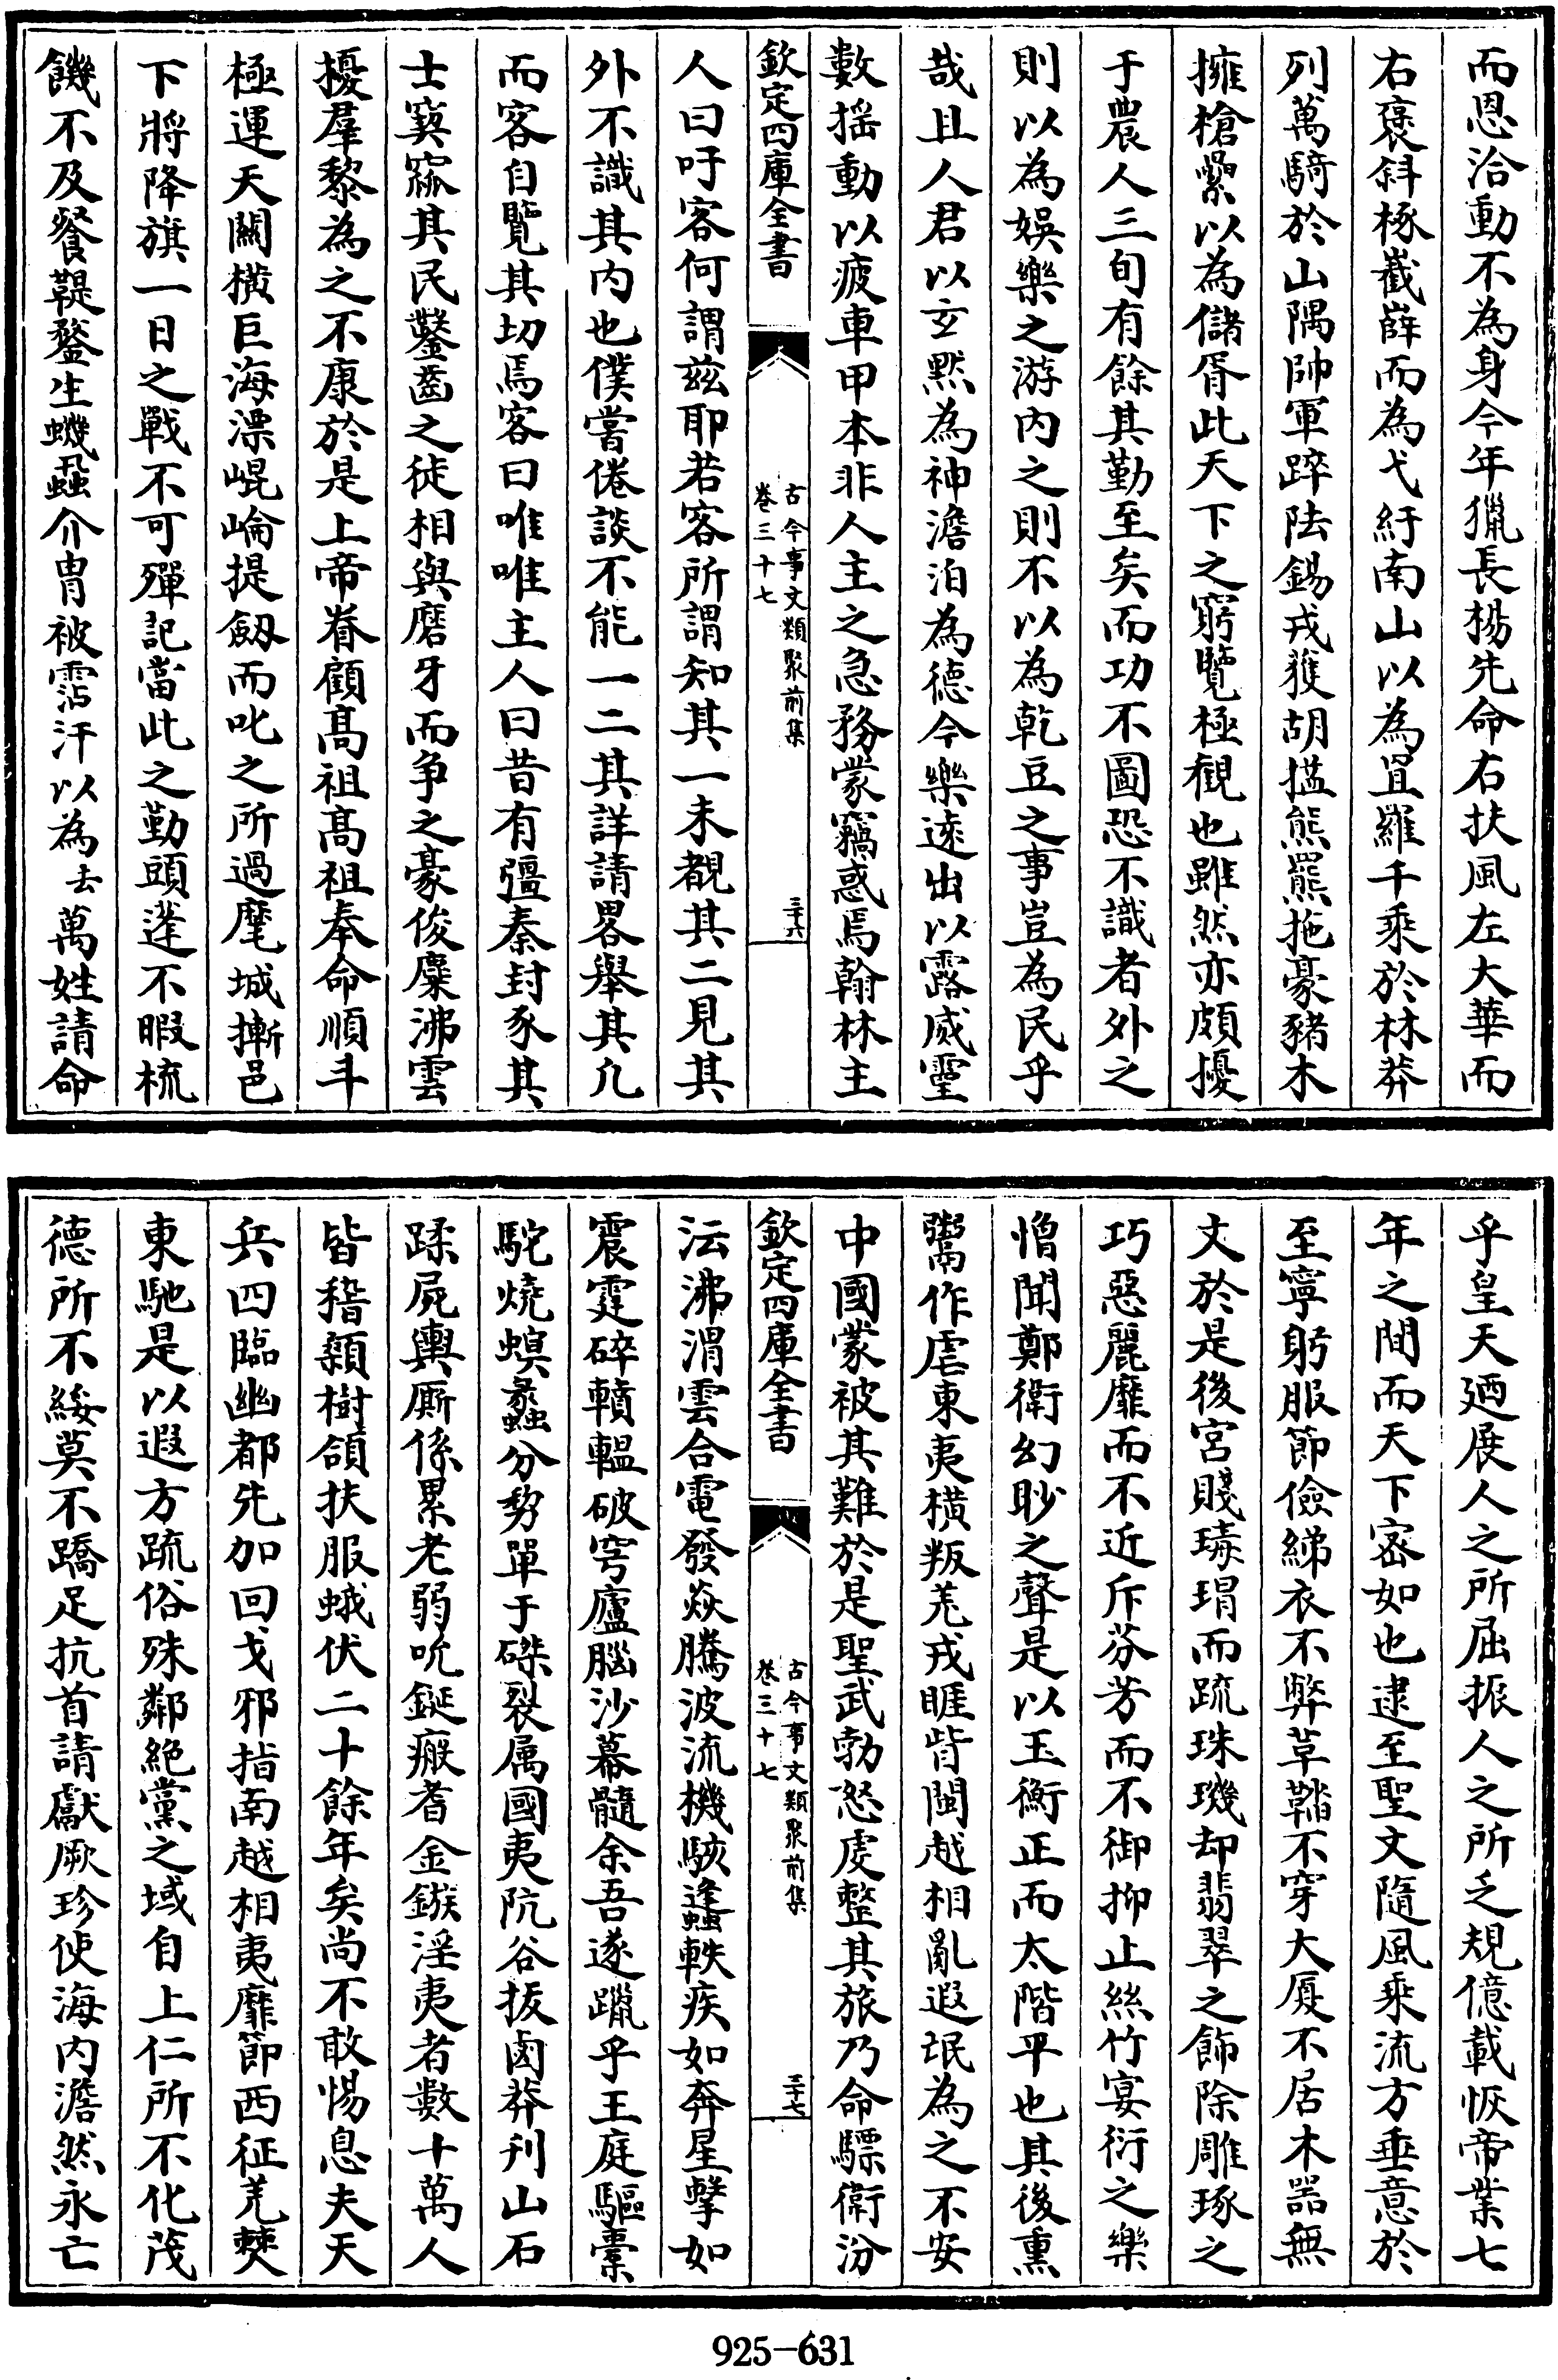 而恩洽動不為身今年獵長楊先命右扶風左大華而
右褒斜椓嶻嶭而為弋紆南山以為罝羅千乘於林莽
列萬騎於山隅帥軍踤阹錫戎獲胡搤熊羆拖豪豬木
擁槍纍以為儲胥此天下之窮覽極觀也雖然亦頗擾
于農人三旬有餘其勤至矣而功不圖恐不識者外之
則以為娛樂之游内之則不以為乾豆之事豈為民乎
哉且人君以玄黙為神澹泊為德今樂逺出以露威靈
數揺動以疲車甲本非人主之急務蒙竊惑焉翰林主
欽定四庫全書
古今事文類聚前集
卷三十七
三十六
人曰吁客何謂兹耶若客所謂知其一未覩其二見其
外不識其内也僕嘗倦談不能一二其詳請畧舉其凡
而客自覽其切焉客曰唯唯主人曰昔有彊秦封豕其
士窫窳其民鑿齒之徒相與磨牙而争之豪俊麋沸雲
擾羣黎為之不康於是上帝眷顧髙祖髙祖奉命順斗
極運天關横巨海漂崐崘提劒而叱之所過麾城摲邑
下將降旗一日之戰不可殫記當此之勤頭蓬不暇梳
饑不及餐鞮鍪生蟣蝨介胄被霑汗以為去萬姓請命
乎皇天廼展人之所屈振人之所乏規億載恢帝業七
年之間而天下宻如也逮至聖文隨風乘流方垂意於
至寧躬服節儉綈衣不弊草鞜不穿大厦不居木器無
文於是後宮賤瑇瑁而疏珠璣却翡翠之飾除雕琢之
巧惡麗靡而不近斥芬芳而不御抑止絲竹宴衍之樂
憎聞鄭衛幻眇之聲是以玉衡正而太階平也其後熏
鬻作虐東夷横叛羌戎睚眥閩越相亂遐氓為之不安
中國蒙被其難於是聖武勃怒爰整其旅乃命驃衛汾
欽定四庫全書
古今事文類聚前集
卷三十七
三十七
沄沸渭雲合電發猋騰波流機駭蠭軼疾如奔星擊如
震霆碎轒轀破穹廬腦沙幕髓余吾遂躐乎王庭驅橐
駝燒熐蠡分剓單于磔裂属國夷阬谷拔鹵莽刋山石
蹂屍輿厮係累老弱吮鋋瘢耆金鏃淫夷者數十萬人
皆稽顙樹頜扶服蛾伏二十餘年矣尚不敢惕息夫天
兵四臨幽都先加回戈邪指南越相夷靡節西征羌僰
東馳是以遐方疏俗殊鄰絶黨之域自上仁所不化茂
德所不綏莫不蹻足抗首請獻厥珍使海内澹然永亡
925-631